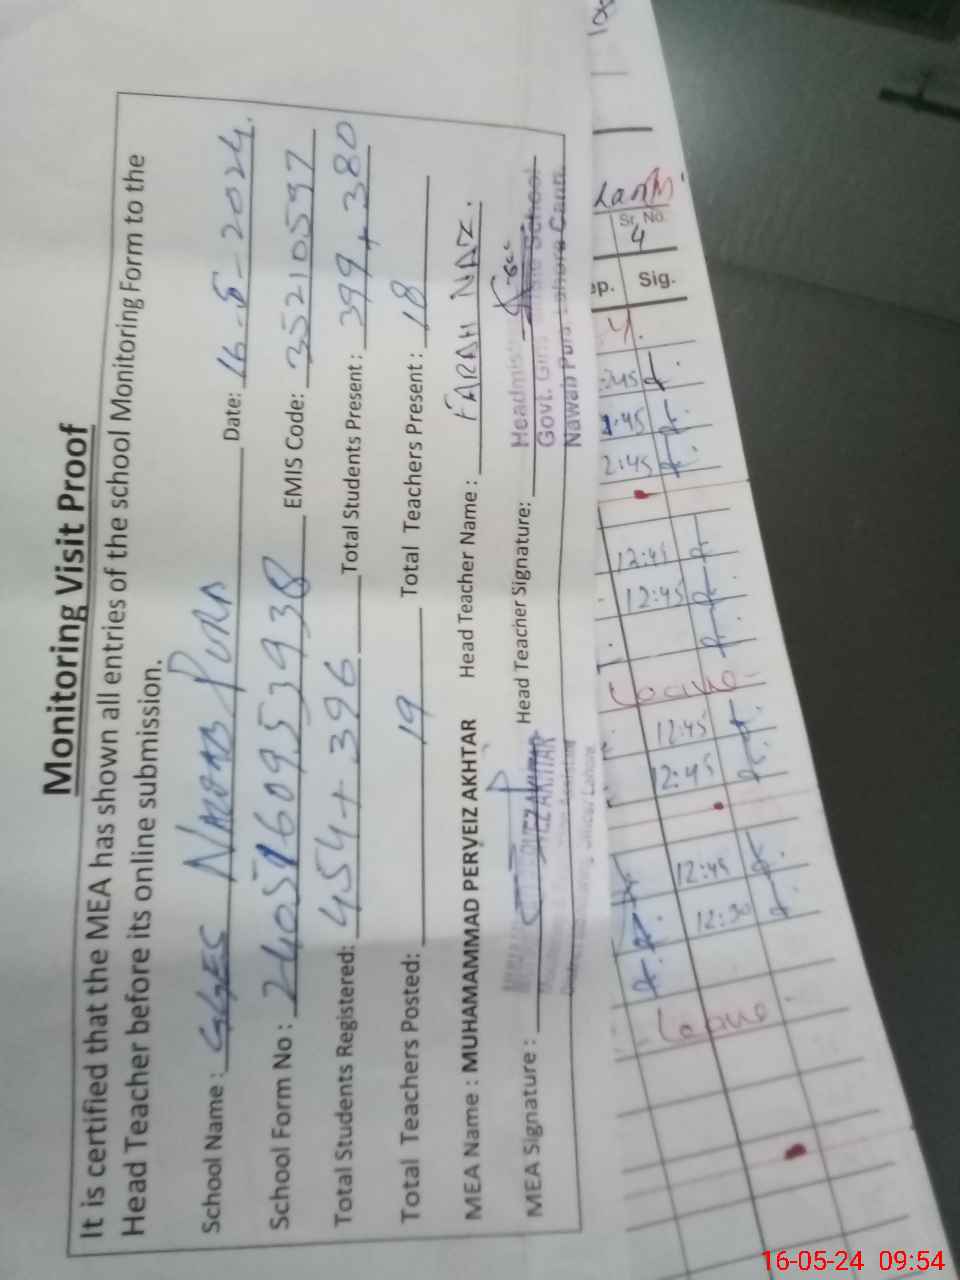 Monitoring Visit Proof
It is certified that the MEA has shown all entries of the school Monitoring Form to the
Head Teacher before its online submission.
School Name : GGES NAWAB PURA Date: 16-5-2024.
School Form No : 24051609539938 EMIS Code: 35210597
Total Students Registered: 454+396 Total Students Present : 399+380
Total Teachers Posted: 19 Total Teachers Present : 18
MEA Name : MUHAMAMMAD PERVEIZ AKHTAR Head Teacher Name : FARAH NAZ.
MEA Signature : Head Teacher Signature:
Headmistress
Govt. School
Nawab Pura, Lahore Cantt.
Sr. No.
4
Sig.
:45
1:45
2:45
12:45
12:45
Leave
12:45
12:45
12:45
12:30
Leave
16-05-24 09:54